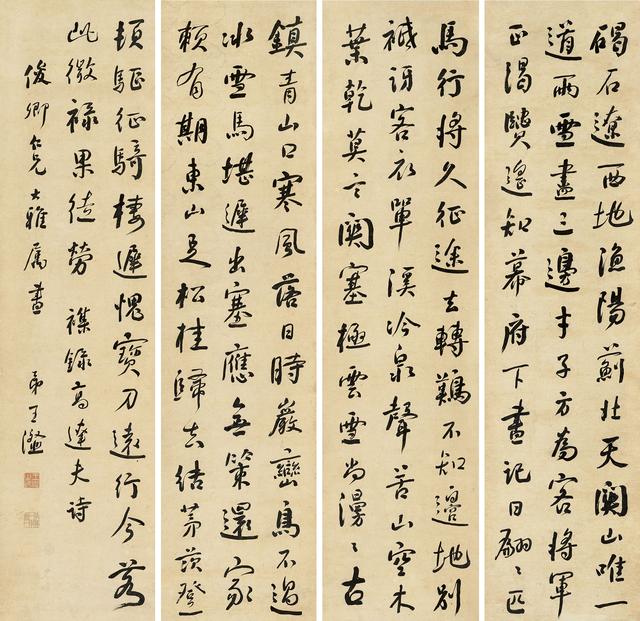 碣石遼西地漁陽薊北天關山唯一
道雨雪盡三邊才子方為客將軍
正渴賢遙知幕府下書記日翩〻匹
馬行將久征途去轉難不知邊地別
祗訝客衣單溪冷泉聲苦山空木
葉乾莫言關塞極雲雪尚漫〻古
鎮青山口寒風落日時巖巒鳥不過
冰雪馬堪遲出塞應無策還家
賴有期東山足松桂歸去結茅茨登
頓驅征騎棲遲愧寶刀遠行今若
此微祿果徒勞 襍錄高達夫詩
俊卿仁兄大雅屬書 弟王